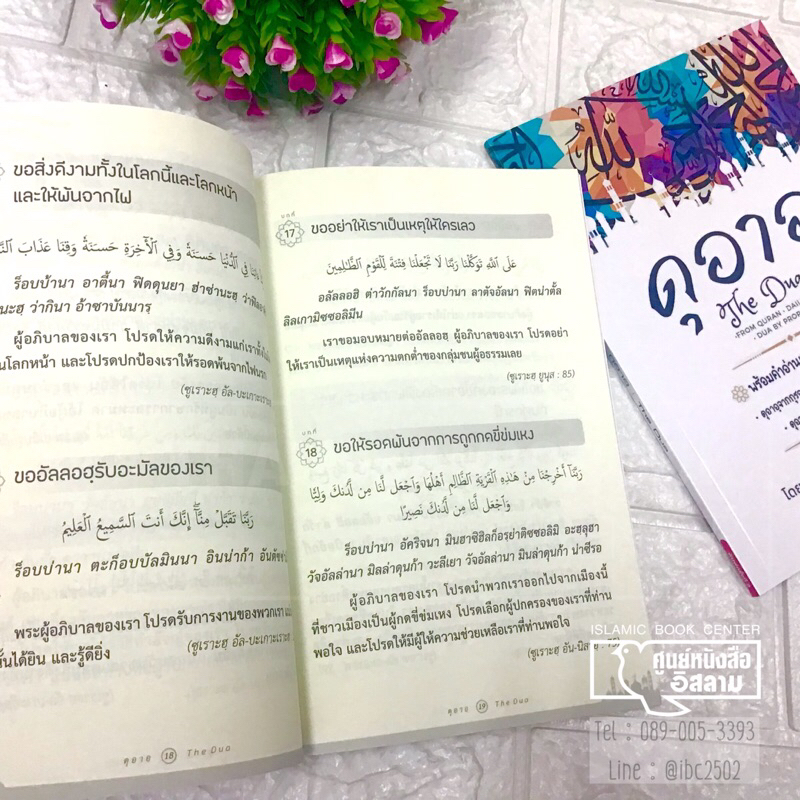 ขอสิ่งดีงามทั้งในโลกนี้และโลกหน้า
และให้พ้นจากไฟ
فِي الدُّنْيَا حَسَنَةً وَفِي الْآخِرَةِ حَسَنَةً وَقِنَا عَذَابَ
ร็อบบ้านา อาตี้นา ฟิดดุนยา ฮ่าซ่านะฮฺ
นะฮฺ ว่ากินา อ้าซาบันนารฺ
ผู้อภิบาลของเรา โปรดให้ความดีงามแก่เรา
โลกหน้า และโปรดปกป้องเราให้รอดพ้นจากไฟนรก
(ซูเราะฮฺ อัล-บะเกาะเราะ
ขออัลลอฮฺรับอะมัลของเรา
رَبَّنَا تَقَبَّلْ مِنَّا إِنَّكَ أَنتَ السَّمِيعُ الْعَلِيمُ
ร็อบบ่านา ตะก็อบบัลมินนา อินน่าก้า
พระผู้อภิบาลของเรา โปรดรับการงานของพวกเรา
ได้ยิน และรู้ดียิ่ง
(ซูเราะฮฺ อัล-บะเกาะเราะ
ดุอาอฺ 18 The Dua
บทที่
17 ขออย่าให้เราเป็นเหตุให้ใครเลว
عَلَى اللَّهِ تَوَكَّلْنَا رَبَّنَا لَا تَجْعَلْنَا فِتْنَةً لِّلْقَوْمِ الظَّالِمِينَ
อลัลลอฮิ ต่าวักกัลนา ร็อบบ่านา ลาตัจอัลนา ฟิตน่าตั้ล
ลิลเกามิซซอลิมีน
เราขอมอบหมายต่ออัลลอฮฺ ผู้อภิบาลของเรา โปรดอย่า
ให้เราเป็นเหตุแห่งความตกต่ำของกลุ่มชนผู้อธรรมเลย
(ซูเราะฮฺ ยูนุส : 85)
บทที่
18 ขอให้รอดพ้นจากการถูกกดขี่ข่มเหง
رَبَّنَا أَخْرِجْنَا مِنْ هَٰذِهِ الْقَرْيَةِ الظَّالِمِ أَهْلُهَا وَاجْعَل لَّنَا مِن لَّدُنكَ وَلِيًّا
وَاجْعَل لَّنَا مِن لَّدُنكَ نَصِيرًا
ร็อบบ่านา อัคริจนา มินฮาซิฮิลก็อรฺย่าติซซอลิมิ อะฮลุฮา
วัจอัลล่านา มิลล่าดุนก้า วะลียา วัจอัลล่านา มินล่าดุนก้า น่าซีรอ
ผู้อภิบาลของเรา โปรดนำพวกเราออกไปจากเมืองนี้
ที่ชาวเมืองเป็นผู้กดขี่ข่มเหง โปรดเลือกผู้ปกครองของเราที่ท่าน
พอใจ และโปรดให้มีผู้ให้ความช่วยเหลือเราที่ท่านพอใจ
(ซูเราะฮฺ อัน-นิสาอฺ
ดุอาอฺ 19 The Dua
ดุอา
The Dua
FROM QURAN
DUA BY
พร้อมคำอ่าน
โดย
ISLAMIC BOOK CENTER
ศูนย์หนังสือ
อิสลาม
Tel : 089-005-3393
Line : @ibc2502